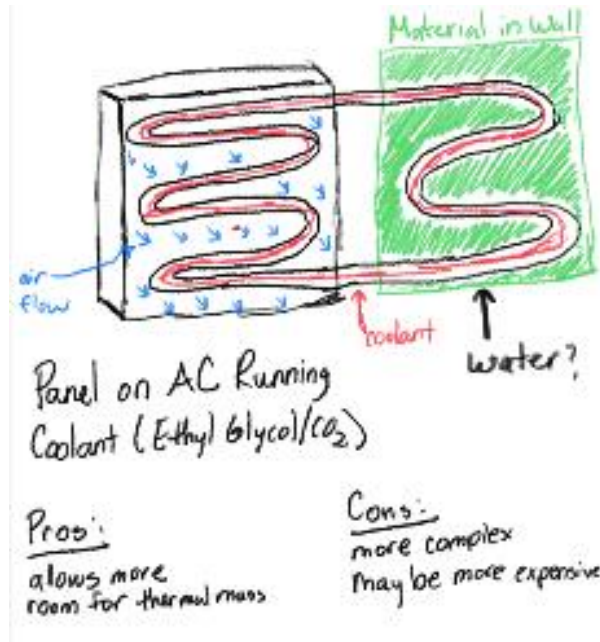 Material in Wall
air
flow
coolant
water?
Panel on AC Running
Coolant (Ethyl Glycol/CO2)
Pros:
alows more
room for thermal mass
Cons:
more complex
may be more expensive